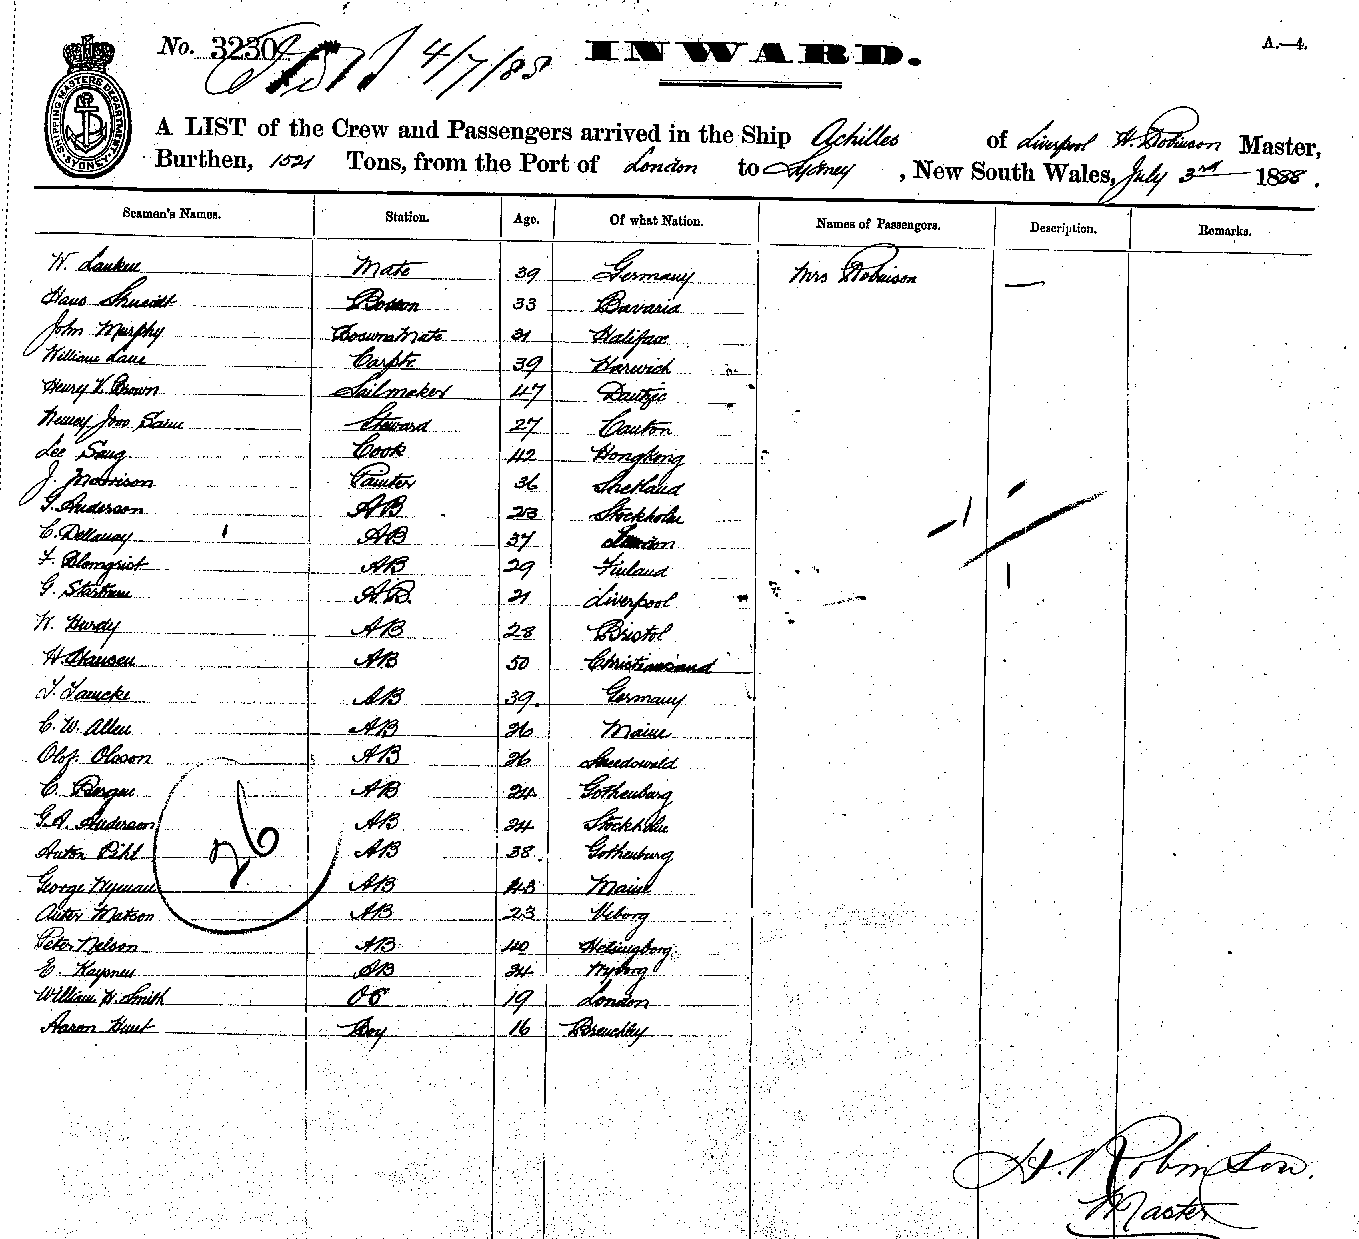 No. 3230 4/7/88 INWARD. A.—4.
SHIPPING MASTERS DEPARTMENT SYDNEY
A LIST of the Crew and Passengers arrived in the Ship Achilles of Liverpool H. Robinson Master,
Burthen, 1521 Tons, from the Port of London to Sydney, New South Wales, July 3rd 1888.
Seamen's Names. Station. Age. Of what Nation. Names of Passengers. Description. Remarks.
W. Mate 39 Germany Mrs Robinson —
Hans 33 Bavaria
John Murphy Boswns Mate 31 Halifax
William Lane Carptr 39 Harwich
Henry V. Brown Sailmaker 47 Dantzic
Steward 27 Canton
Lee Sang Cook 42 Hongkong
J. Morrison Painter 36 Shetland
G. Anderson AB 23 Stockholm
C. Dellaway AB 37 London
F. Blomqvist AB 29 Finland
G. AB. 21 Liverpool
W. Hurdy AB 28 Bristol
H. Hansen AB 50 Christiansand
AB 39. Germany
C. W. Allen AB 26 Maine
Olof Olsson AB 26
C. Bergen AB 24 Gothenburg
G. A. Anderson AB 24 Stockholm
Anton Pihl AB 38. Gothenburg
George Nyman AB 43 Maine
Matson AB 23 Viborg
26
Peter Nelson AB 40 Helsingborg
E. AB 24 Nyborg
William H. Smith OS 19 London
Aaron Hunt Boy 16 Brenchley
H. Robinson.
Master